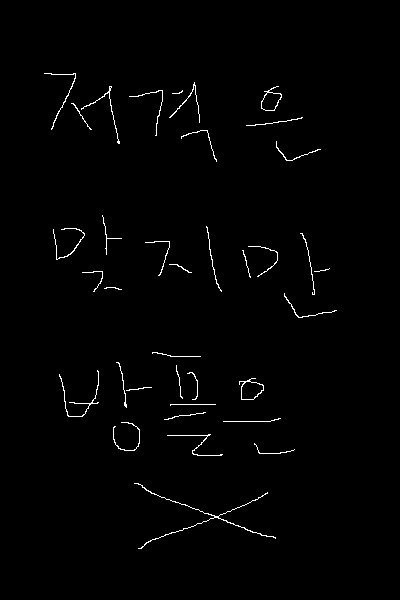 저격은
맞지만
방플은
X